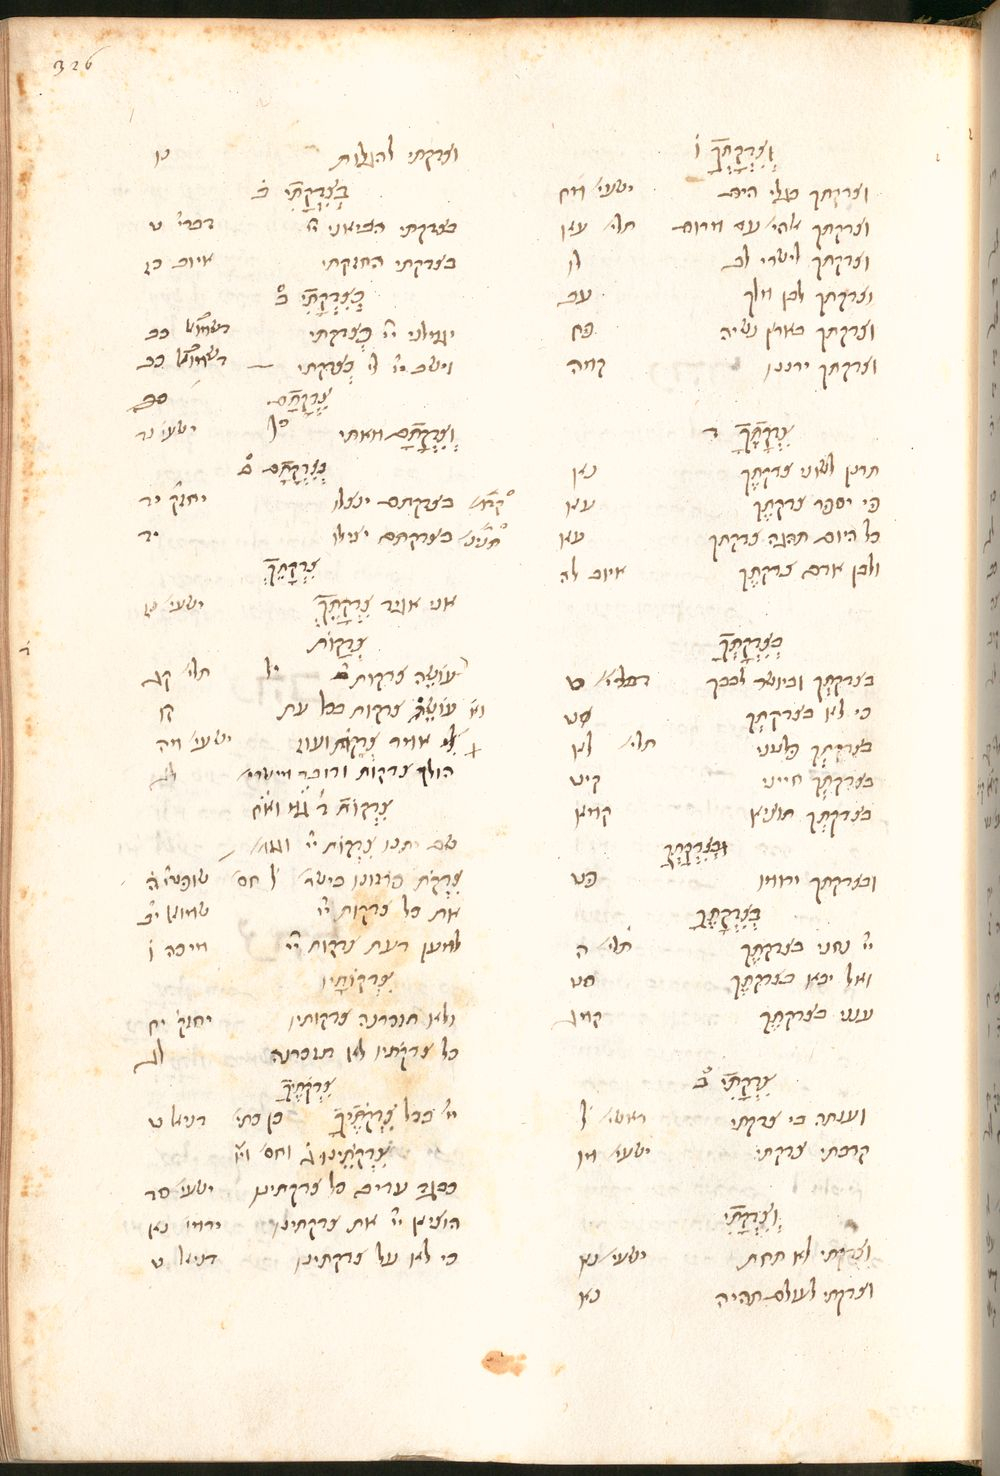 326
וְצִדְקָתְךָ ו
וצדקתך כגלי הים ישעי׳ מח
וצדקתך אלהי׳ עד מרום תלי׳ עא
וצדקתך לישרי לב לו
וצדקתך לבן מלך עב
וצדקתך בארץ נשיה פח
וצדקתך ירננו קמה
צִדְקָתֶךָ ד
תרנן לשוני צדקתך נא
פי יספר צדקתך עא
כל היום תהגה צדקתך עא
ולבן אדם צדקתך איוב לה
בְּצִדְקָתְךָ
בצדקתך ובישר לבבך ט
כי לא בצדקתך ט
בצדקתך פלטני תלי׳ לא
בצדקתך חייני קיט
בצדקתך תוציא קמג
וּבְצִדְקָתְךָ
ובצדקתך ירומו פט
בְּצִדְקָתֶךָ
יי׳ נחני בצדקתך תלי׳ ה
ואל יבאו בצדקתך סט
ענני בצדקתך קמג
צִדְקָתִי ב
וענתה בי צדקתי ראשי׳ ל
קרבתי צדקתי ישעי׳ מו
וְצִדְקָתִי
וצדקתי לא תחת ישעי׳ נא
וצדקתי לעולם תהיה נא
וצדקתי להגלות נו
בְּצִדְקָתִי ב
בצדקתי הביאני יי׳ דברי׳ ט
בצדקתי החזקתי איוב כז
כְּצִדְקָתִי ב
יגמלני יי׳ כצדקתי כב
וישב יי׳ לי כצדקתי כב
צִדְקָתָם
וְצִדְקָתָם מאתי ישעי׳ נד
בְּצִדְקָתָם
בצדקתם ינצלו יחזק׳ יד
בצדקתם יצילו יד
צִדְקָתֵךְ
אני אגיד צדקתך ישעי׳ נז
צְדָקוֹת
עושה צדקות יי׳ תלי׳ קג
עושה צדקות בכל עת קו
לי אמר צדקות ועוז ישעי׳ מה
הולך צדקות ודובר מישרי׳ לג
צִדְקוֹת ד׳
שם יתנו צדקות יי׳
צדקות פרזונו בישר׳ שופטי׳ ה
את כל צדקות יי׳ שמוא׳ יב
למען דעת צדקות יי׳ מיכה ו
צִדְקוֹתָיו
ולא תזכרנה צדקותיו יחזק׳ יח
כל צדקתיו לא תזכרנה לג
צִדְקֹתֶיךָ
יי׳ ככל צדקתיך כן כתי׳ דניאל ט
צִדְקֹתֵינוּ ג וחס׳
וכבגד עדים כל צדקתינו ישעי׳ סד
הוציא יי׳ את צדקתינו ירמי׳ נא
כי לא על צדקתינו דניאל ט